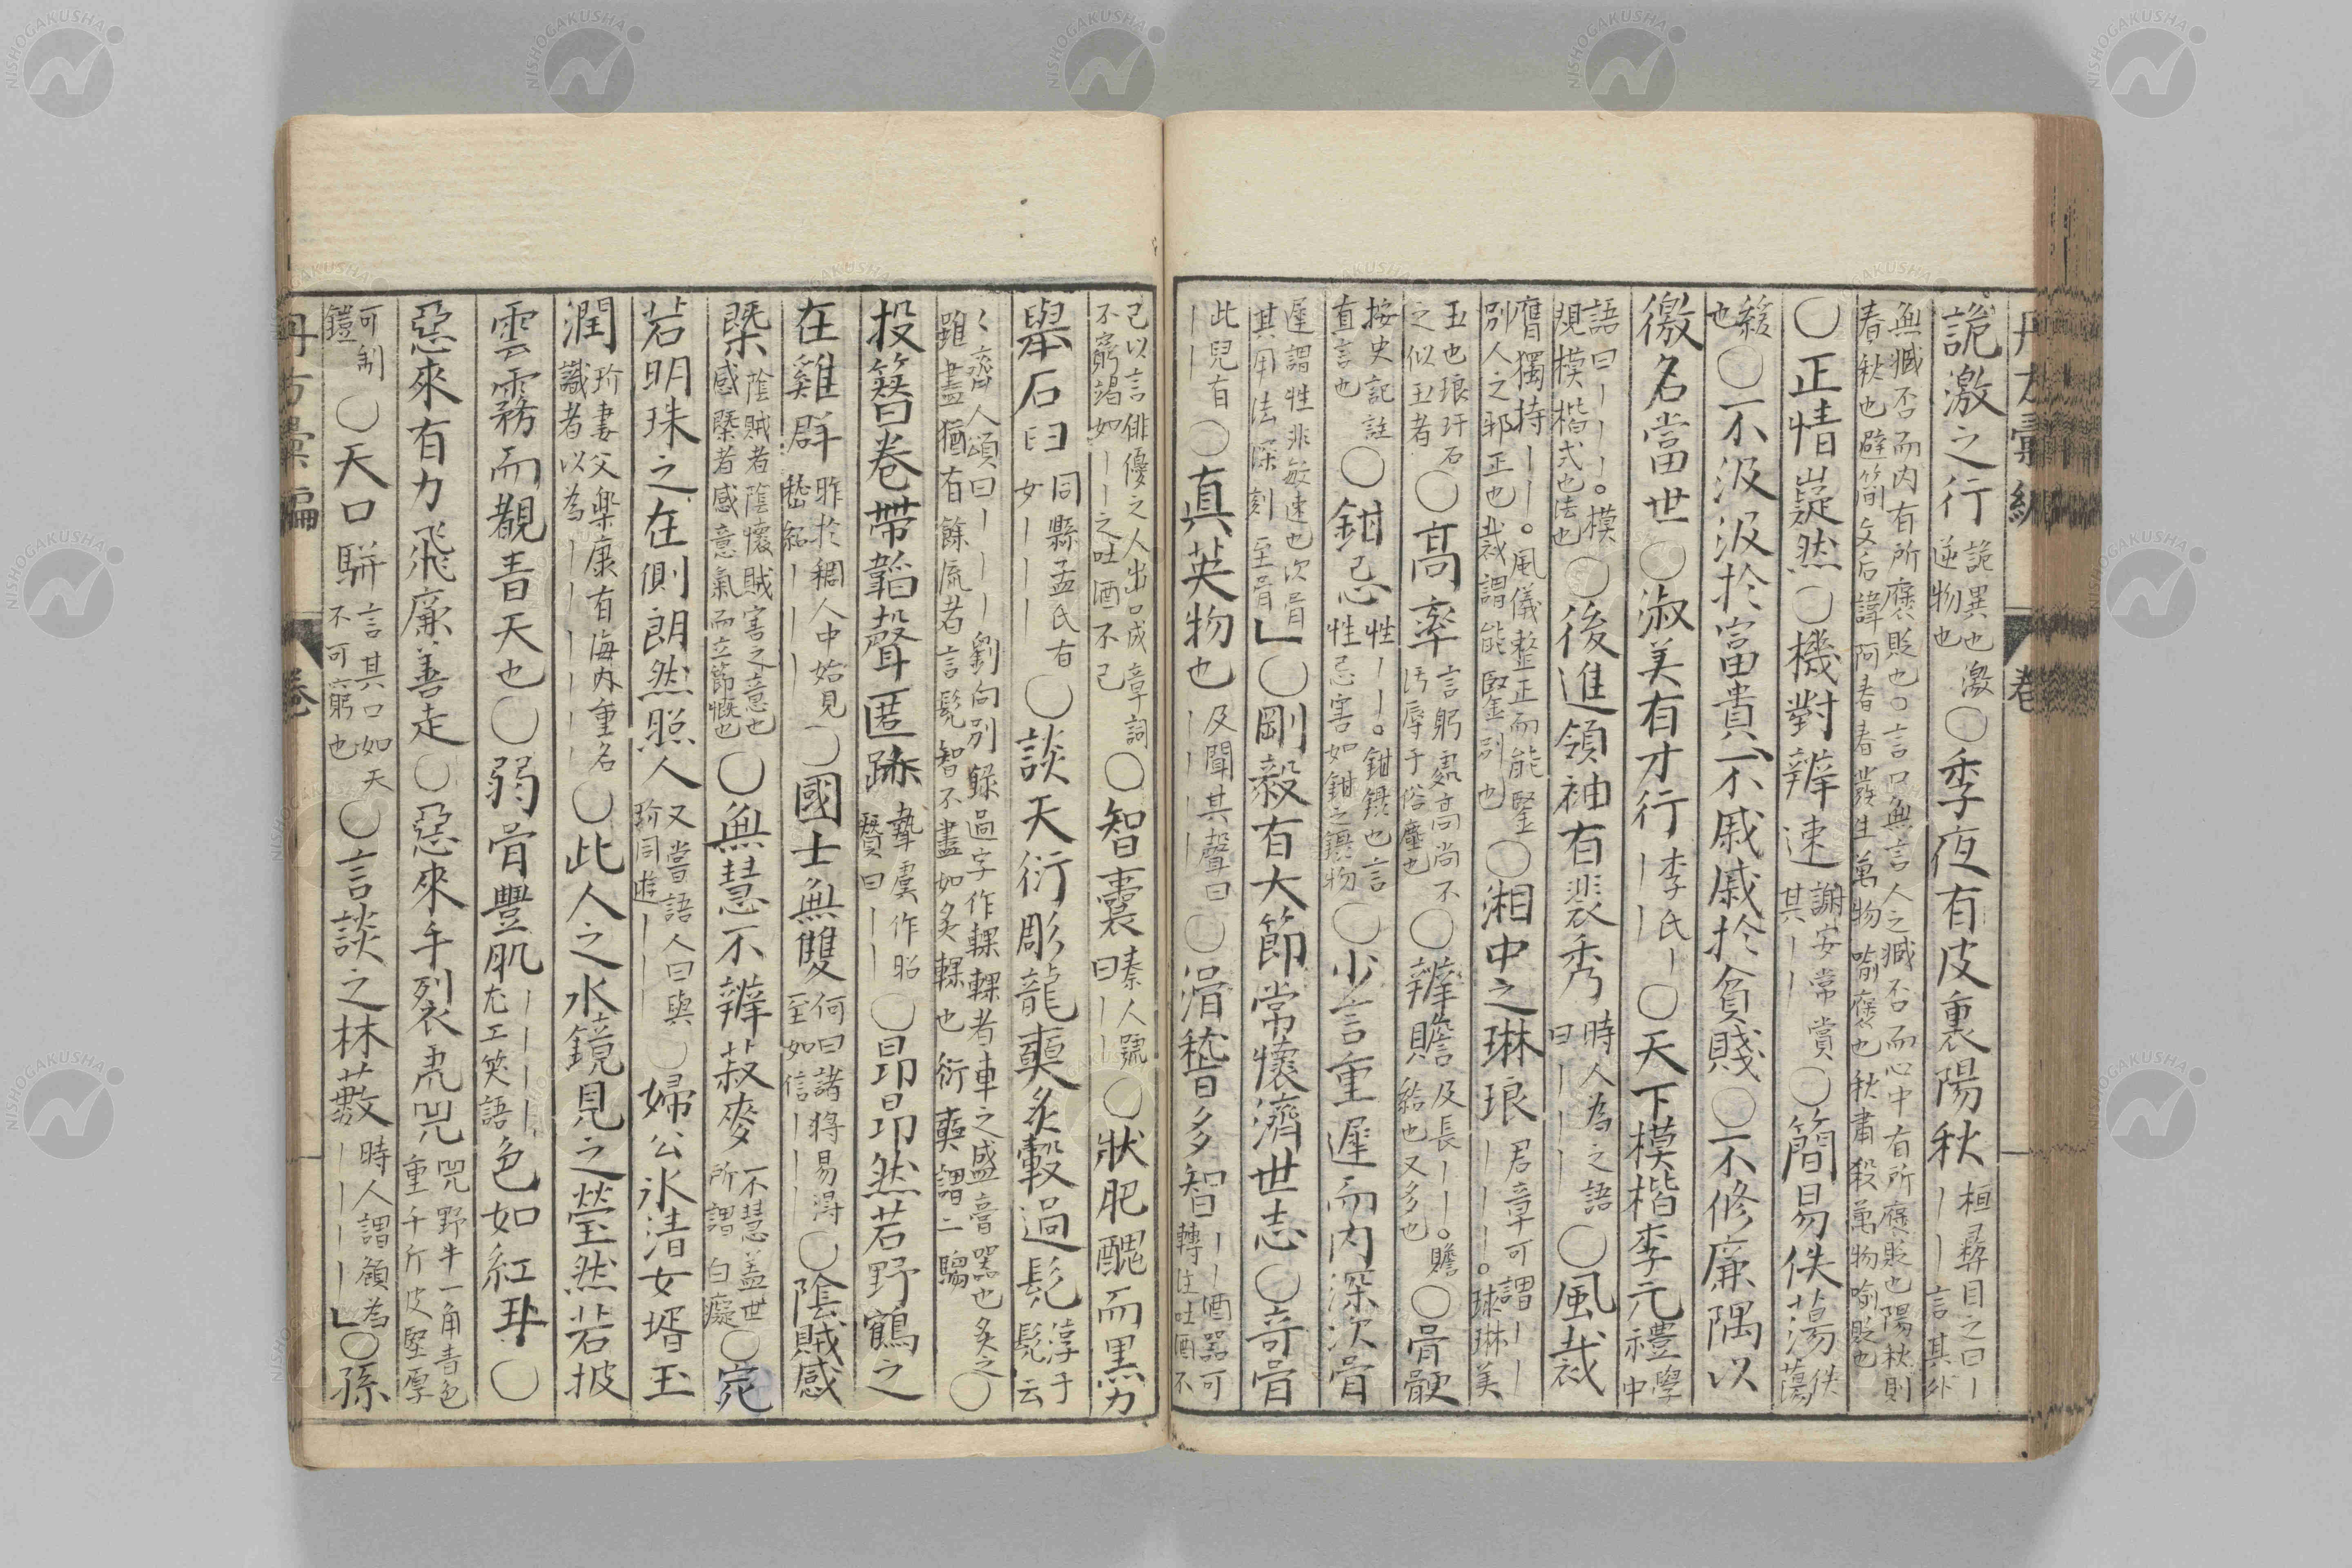 丹方彙編 卷
詭激之行 詭異也激逆物也 ○季夜有皮裏陽秋 桓彞目之曰丨丨丨言其外
無臧否而内有所褒貶也○言口無言人之臧否而心中有所褒貶也陽秋則
春秋也避簡文后諱阿春春發生萬物喻褒也秋肅殺萬物喻貶也
○正情嶷然○機對辨速 謝安常賞其丨丨 ○簡易佚蕩 佚蕩
緩也 ○不汲汲於富貴不戚戚於貧賤○不修廉隅以
徼名當世○淑美有才行 李氏丨丨丨 ○天下模楷李元禮 學中
語曰丨丨丨丨。模規模楷式也法也 ○後進領袖有裴秀 時人為之語曰丨丨丨丨 ○風裁
膺獨持丨丨。風儀整正而能堅
別人之邪正也裁謂能堅别也 ○湘中之琳琅 君章可謂丨丨丨丨丨。球琳美
玉也琅玕石之似玉者 ○高率 言躬處高尚不汚辱于俗塵也 ○辨贍 及長丨丨。贍給也又多也 ○骨骾
按史記註直言也 ○鉗忌 性丨丨。鉗鑷也言性忌害如鉗之鑷物 ○少言重遲而内深次骨
遲謂性非敏速也次骨其用法深刻至骨 ○剛毅有大節常懷濟世志○竒骨
此兒有丨丨 ○真英物也 及聞其聲曰丨丨丨丨 ○滑稽多智 丨丨酒器可轉注吐酒不
已以言俳優之人出口成章詞不窮竭如丨丨之吐酒不已 ○智囊 秦人號曰丨丨 ○狀肥醜而黑力
舉石臼 同縣孟氏有女丨丨丨丨 ○談天衍彫龍奭炙轂過髠 淳于髠云
〻齊人頌曰丨丨丨劉向别録過字作輠輠者車之盛膏器也炙之
雖盡猶有餘流者言髠智不盡如炙輠也衍奭謂二騶 ○
投簪卷帶韜聲匿跡 摯虞作昭賛曰丨丨 ○昂昂然若野鶴之
在雞群 昨於稠人中始見嵇紹丨丨丨丨 ○國士無雙 何曰諸將易得至如信丨丨丨丨 ○陰賊感
槩 陰賊者陰懷賊害之意也感槩者感意氣而立節慨也 ○無慧不辨菽麥 不慧盖世所謂白癡 ○宛
若明珠之在側朗然照人 又嘗語人曰與玠同遊丨丨丨 ○婦公氷清女壻玉
潤 玠妻父樂廣有海内重名識者以為丨丨丨丨丨丨丨 ○此人之水鏡見之瑩然若披
雲霧而覩青天也○弱骨豐肌 丨丨丨丨尤工笑語 色如紅玉○
惡來有力飛廉善走○惡來手裂虎兕 兕野牛一角青色重千斤皮堅厚
可制鎧 ○天口駢 言其口如天不可窮也 ○言談之林藪 時人謂頠為丨丨丨丨丨 ○孫
丹方彙編 卷